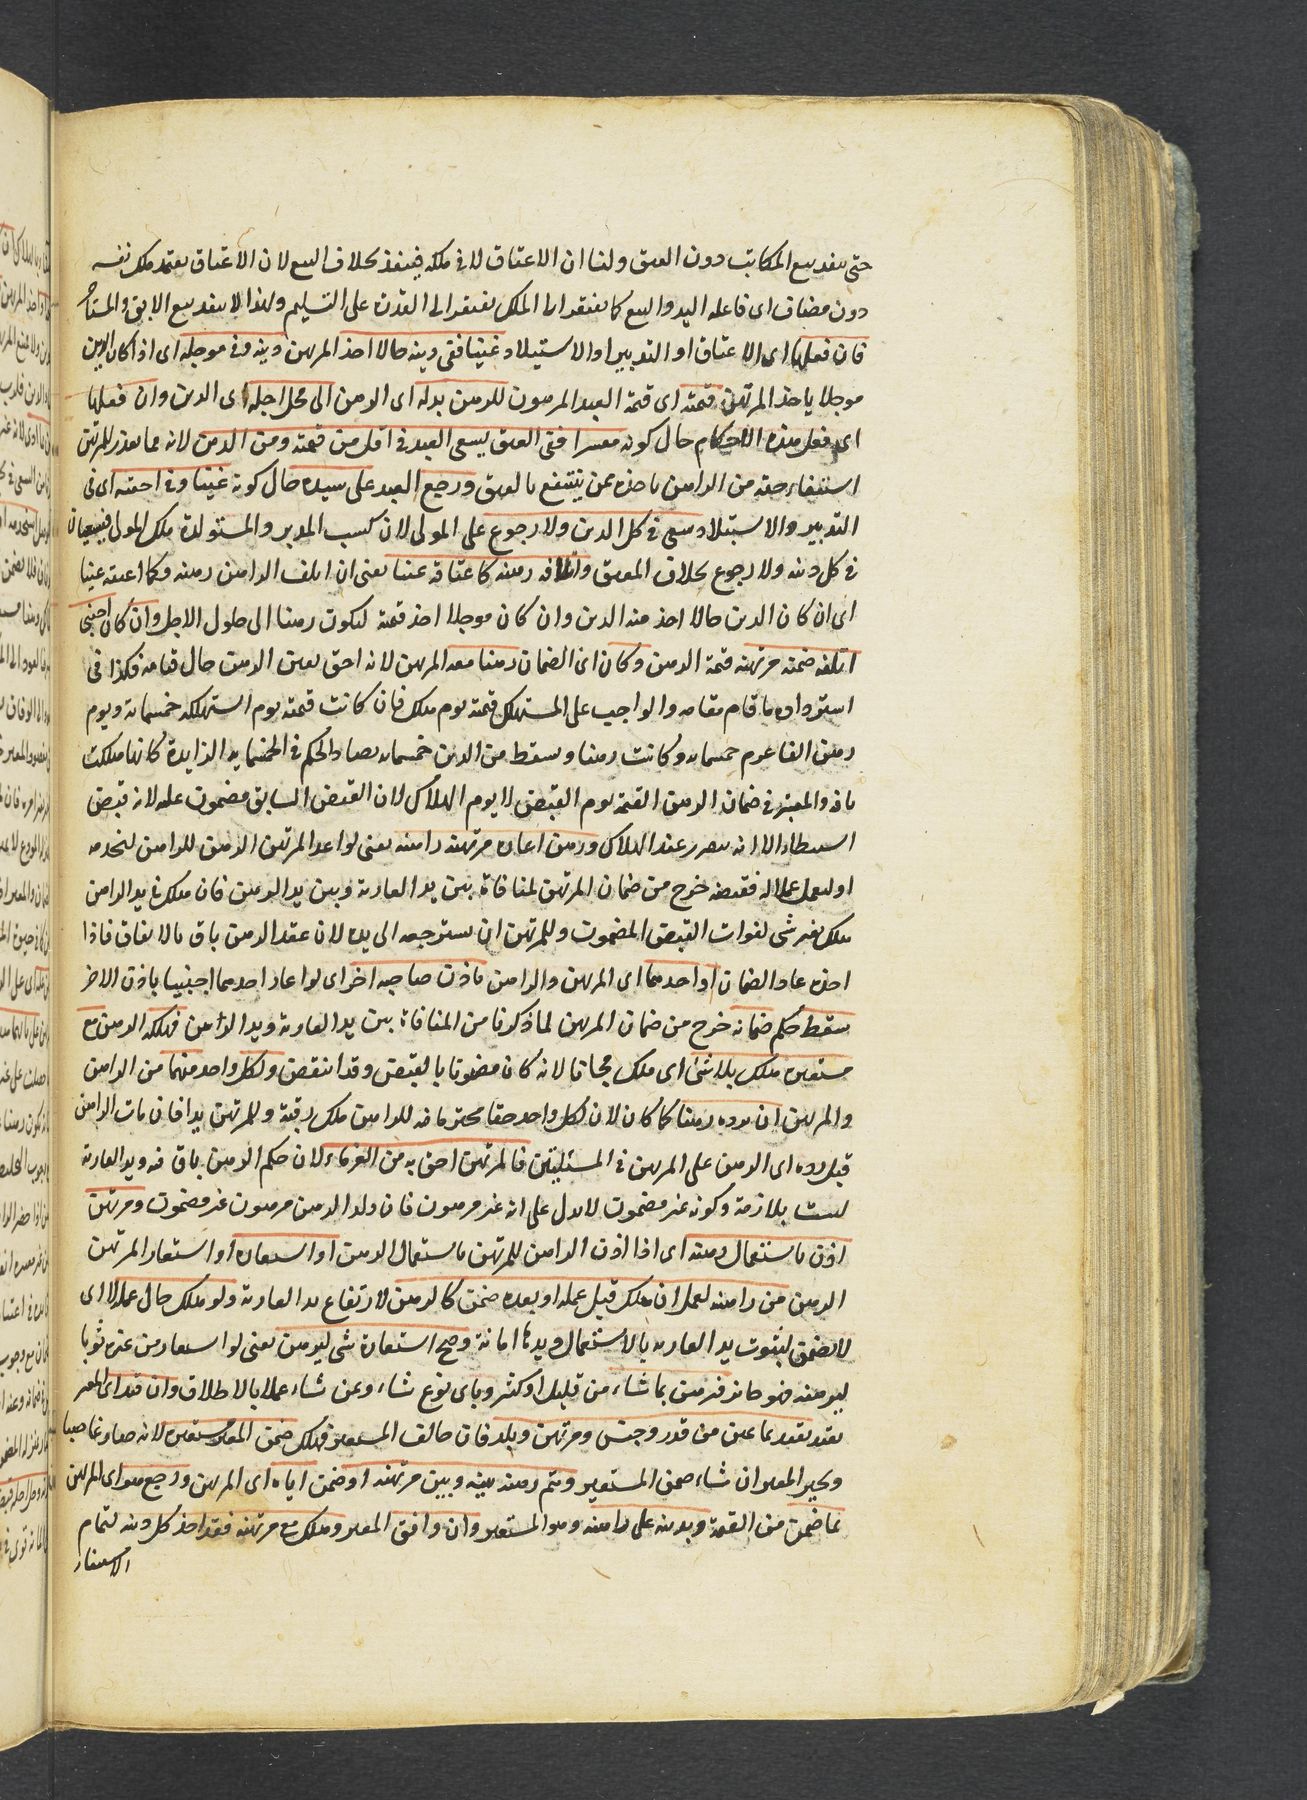 حتى ينفذ بيع المكاتب دون العتق ولنا ان الاعتاق لاقى ملكه فينفذ بخلاف البيع لان الاعتاق يعتمد ملك نفسه
دون مضاف اى فاعله اليد والبيع كما يفتقر الى الملك يفتقر الى القدرة على التسليم ولهذا لا ينفذ بيع الابق والمستأجر
فان فعلها اى الاعتاق او التدبير او الاستيلاد غنيا ففى دينه حالا اخذ المرتهن دينه وفى موجله اى اذا كان الدين
موجلا ياخذ المرتهن قيمته اى قيمة العبد المرهون للرهن بدله اى الرهن الى محل اجله اى الدين وان فعلها
اى فعل هذه الاحكام حال كونه معسرا ففى العتق يسعى العبد فى اقل من قيمته ومن الدين لانه لما تعذر للمرتهن
استيفاء حقه من الراهن ياخذه ممن ينتفع بالعتق ورجع العبد على سيده حال كونه غنيا وفى اختيه اى فى
التدبير والاستيلاد سعى فى كل الدين ولا رجوع على المولى لان كسب المدبر والمستولدة ملك المولى فيسعيان
فى كل دينه ولا رجوع بخلاف المعتق واتلافه رهنه كاعتاقه غنيا يعنى ان اتلف الراهن رهنه فكما اعتقه غنيا
اى ان كان الدين حالا اخذ منه الدين وان كان موجلا اخذ قيمته ليكون رهنا الى حلول الاجل وان كان اجنبى
اتلفه ضمنه مرتهنه قيمة الرهن وكان اى الضمان رهنا معه المرتهن لانه احق بعين الرهن حال قيامه فكذا فى
استرداد ما قام مقامه والواجب على المستهلك قيمته يوم هلك فان كانت قيمته يوم استهلكه خمسمائة ويوم
رهن الفا غرم خمسمائة وكانت رهنا وسقط من الدين خمسمائة فصار الحكم فى الخمسماية الزايدة كانها هلكت
بافة والمعتبر فى ضمان الرهن القيمة يوم القبض لا يوم الهلاك لان القبض السابق مضمون عليه لانه قبض
استيفاء الا انه يتقرر عند الهلاك ورهن اعاره مرتهنه راهنه يعنى لو اعار المرتهن الرهن للراهن ليخدمه
او ليعمل عملا له فقبضه خرج من ضمان المرتهن لمنافاة بين يد العارية وبين يد الرهن فان هلك فى يد الراهن
هلك بغير شى لفوات القبض المضمون وللمرتهن ان يسترجعه الى يده لان عقد الرهن باق بالاتفاق فاذا
اخذه عاد الضمان او احدهما اى المرتهن والراهن باذن صاحبه اخر اى لو اعار احدهما اجنبيا باذن الاخر
سقط حكم ضمانه خرج من ضمان المرتهن لما ذكرنا من المنافاة بين يد العارية ويد الراهن فهلكه الرهن مع
مستعيره هلك بلا شئ اى هلك مجانا لانه كان مضمونا بالقبض وقد انتقض ولكل واحد منهما من الراهن
والمرتهن ان يرده رهنا كما كان لان لكل واحد حقا محترما فيه للراهن ملك رقبة وللمرتهن يدا فان مات الراهن
قبل رده اى الرهن على المرتهن فى المسئلتين فالمرتهن احق به من الغرماء لان حكم الرهن باق فيه ويد العارية
ليست بلازمة وكونه غير مضمون لا يدل على انه غير مرهون فان ولد الرهن مرهون غير مضمون ومرتهن
اذن باستعمال رهنه اى اذا اذن الراهن للمرتهن باستعمال الرهن او استعاره او استعار المرتهن
الرهن من راهنه لعمل ان هلك قبل عمله او بعده ضمن كالرهن لارتفاع يد العارية ولو هلك حال عمله لا اى
لا يضمن لثبوت يد العارية بالاستعمال ويدها امانة وصح استعارة شى ليرهن يعنى لو استعار من غيره ثوبا
ليرهنه فهو جائز فيرهن بما شاء من قليل او كثير وباى نوع شاء وعن شاء عملا بالاطلاق وان قيد اى المعير
تقيد بما عين من قدر وجنس ومرتهن وبلد فان خالف المستعير فهلك ضمن المعير مستعيره لانه صار غاصبا
ويخير المعير ان شاء ضمن المستعير ويتم رهنه بينه وبين مرتهنه او ضمن اياه اى المرتهن ورجع هو اى المرتهن
بما ضمن من القيمة وبدينه على راهنه وهو المستعير وان وافق المعير وهلك مع مرتهنه فقد اخذ كل دينه لتمام
الاستيفاء